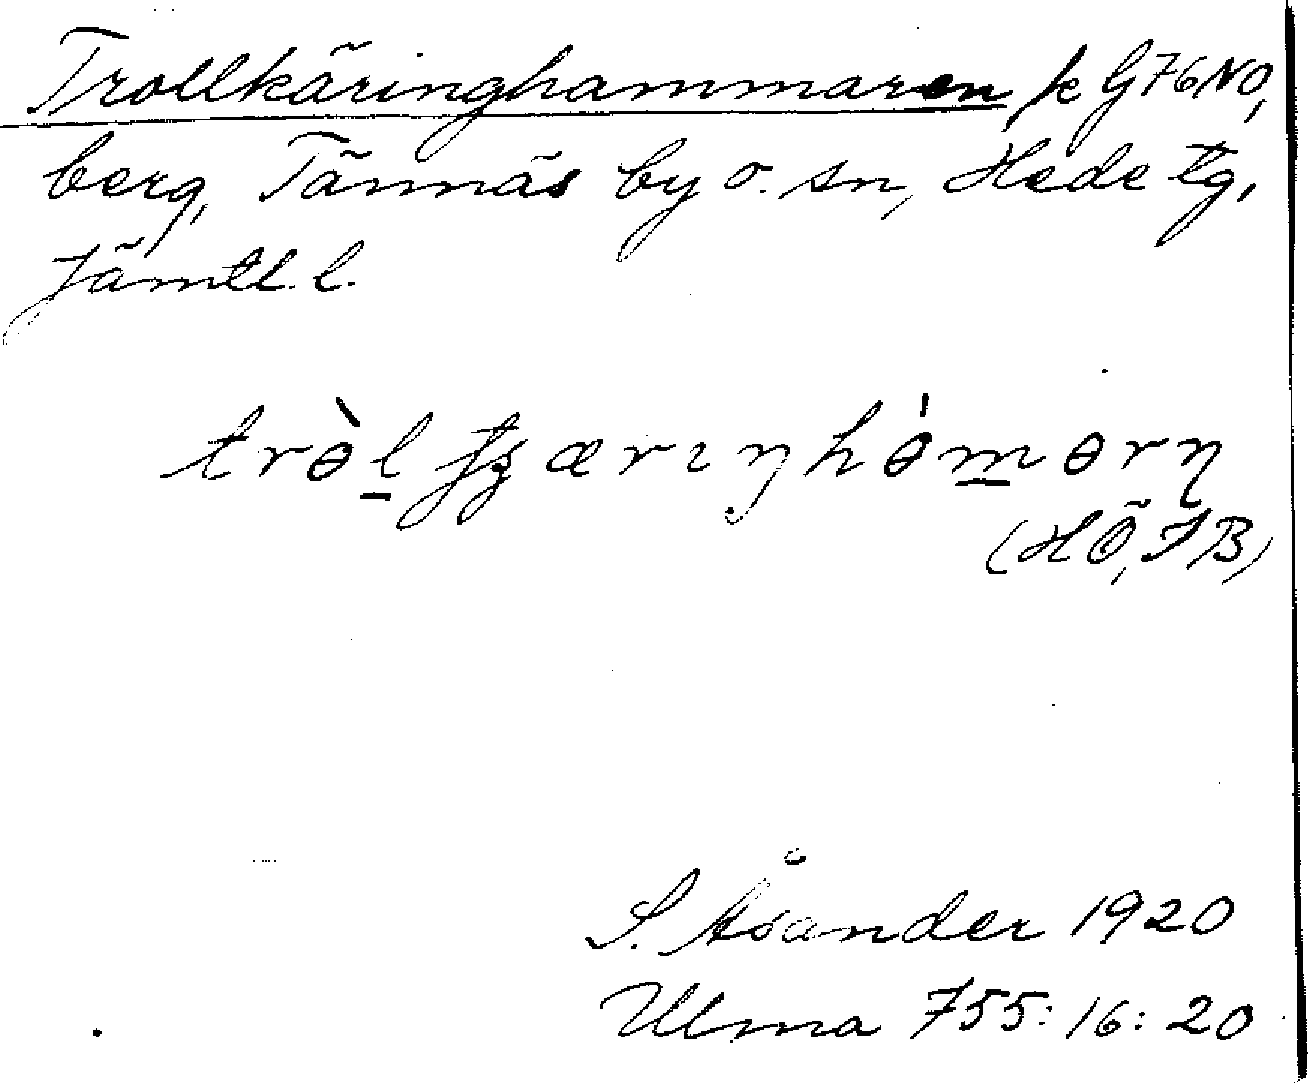 Trollkäringhammaren k G76NO,
berg, Tännäs by o. sn, Hede tg,
Jämtl. l.
trɵ̀l̲ ʃʒærɪŋhɵ́m̲ɵrn̥
(HÖ, JB)
S. Åsander 1920
Ulma 755: 16: 20